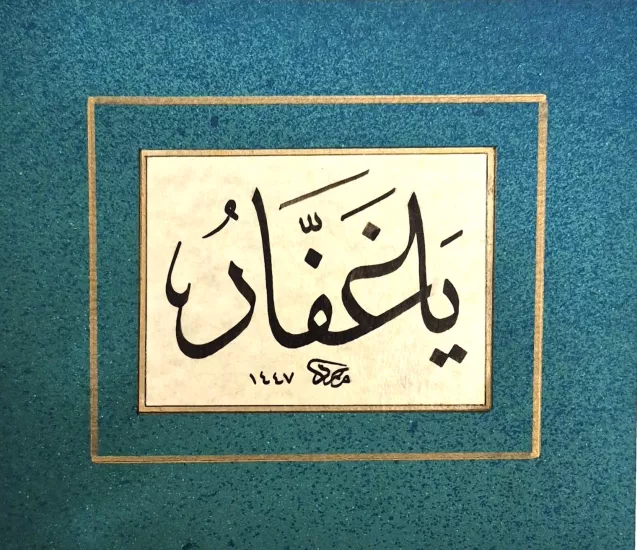 يَا غَفَّارُ
١٤٤٧